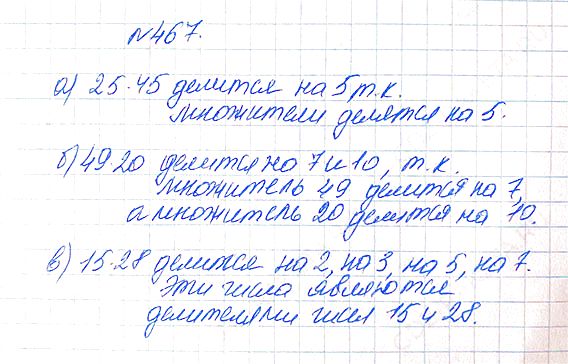 №467.
а) 25·45 делится на 5 т.к.
множители делятся на 5.
б) 49·20 делится на 7 и 10, т.к.
множитель 49 делится на 7,
а множитель 20 делится на 10.
в) 15·28 делится на 2, на 3, на 5, на 7.
Эти числа являются
делителями чисел 15 и 28.